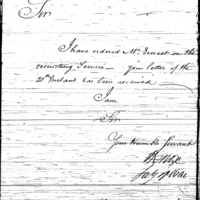 Sir
I have ordered Mr. Ernest on the
recruiting Service — your letter of the
20th Instant has been received
I am
Sir
Your Humble Servant